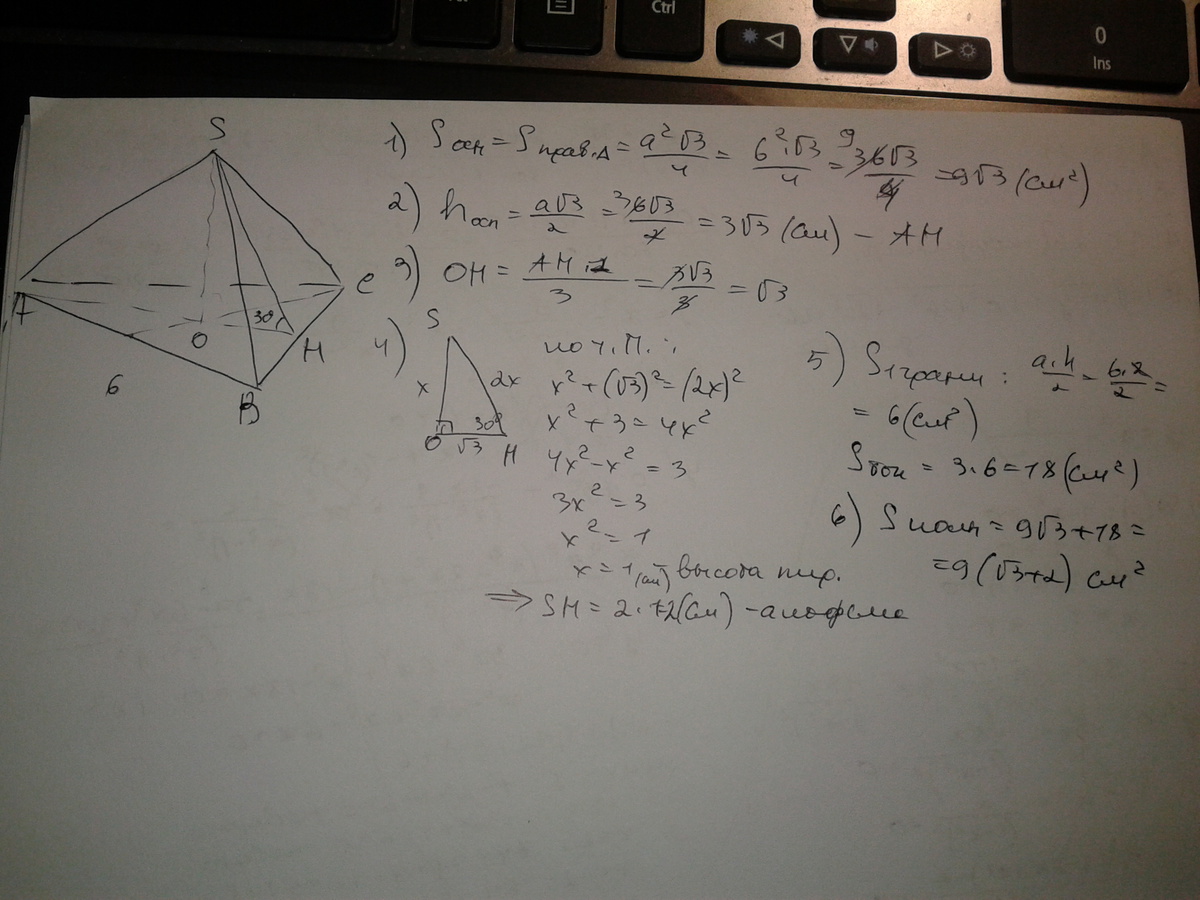 Ctrl
0
Ins
S
A
6
B
O
30°
H
C
1) Sосн = Sправ.Δ = a²√3/4 = 6²·√3/4 = 36√3/4 = 9√3 (см²)
9
2) hосн = a√3/2 = 6√3/2 = 3√3 (см) – AH
3
3) OH = AH·1/3 = 3√3/3 = √3
4)
S
x
2x
O
30°
√3
H
по т. П.:
x² + (√3)² = (2x)²
x² + 3 = 4x²
4x² – x² = 3
3x² = 3
x² = 1
x = 1 (см) – высота пир.
⇒ SH = 2·1=2(см) – апофема
5) S1грани: a·h/2 = 6·2/2 =
= 6(см²)
Sбок = 3·6 = 18 (см²)
6) Sполн = 9√3 + 18 =
= 9(√3+2) см²